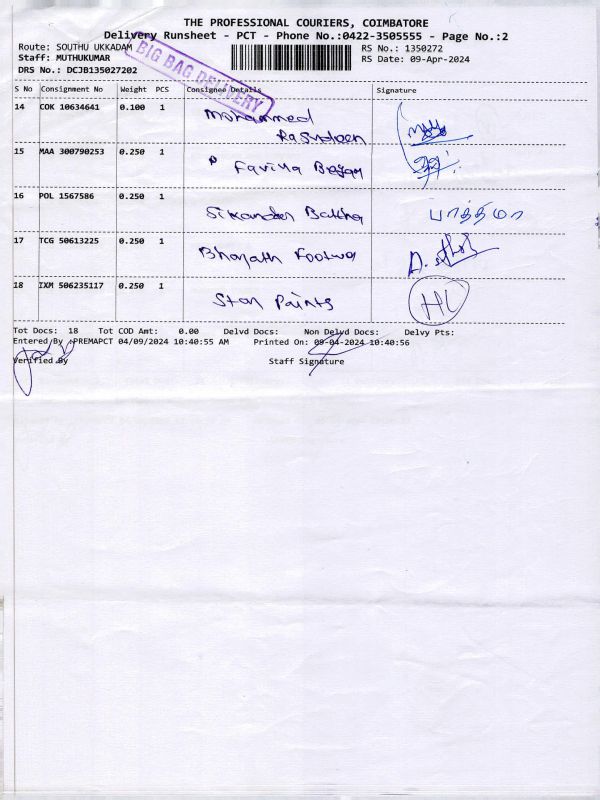 THE PROFESSIONAL COURIERS, COIMBATORE
Delivery Runsheet - PCT - Phone No.:0422-3505555 - Page No.:2
Route: SOUTHU UKKADAM
Staff: MUTHUKUMAR
DRS No.: DCJB135027202
BIG BAG DELIVERY
RS No.: 1350272
RS Date: 09-Apr-2024
S No Consignment No Weight PCS Consignee Details Signature
14 COK 10634641 0.100 1 Mohammed
15 MAA 300790253 0.250 1
16 POL 1567586 0.250 1 Sikander பாத்திமா
17 TCG 50613225 0.250 1 Bharath
18 IXM 506235117 0.250 1 Star Paints
Tot Docs: 18 Tot COD Amt: 0.00 Delvd Docs: Non Delyd Docs: Delvy Pts:
Entered By :PREMAPCT 04/09/2024 10:40:55 AM Printed On: 09-04-2024 10:40:56
Verified By Staff Signature